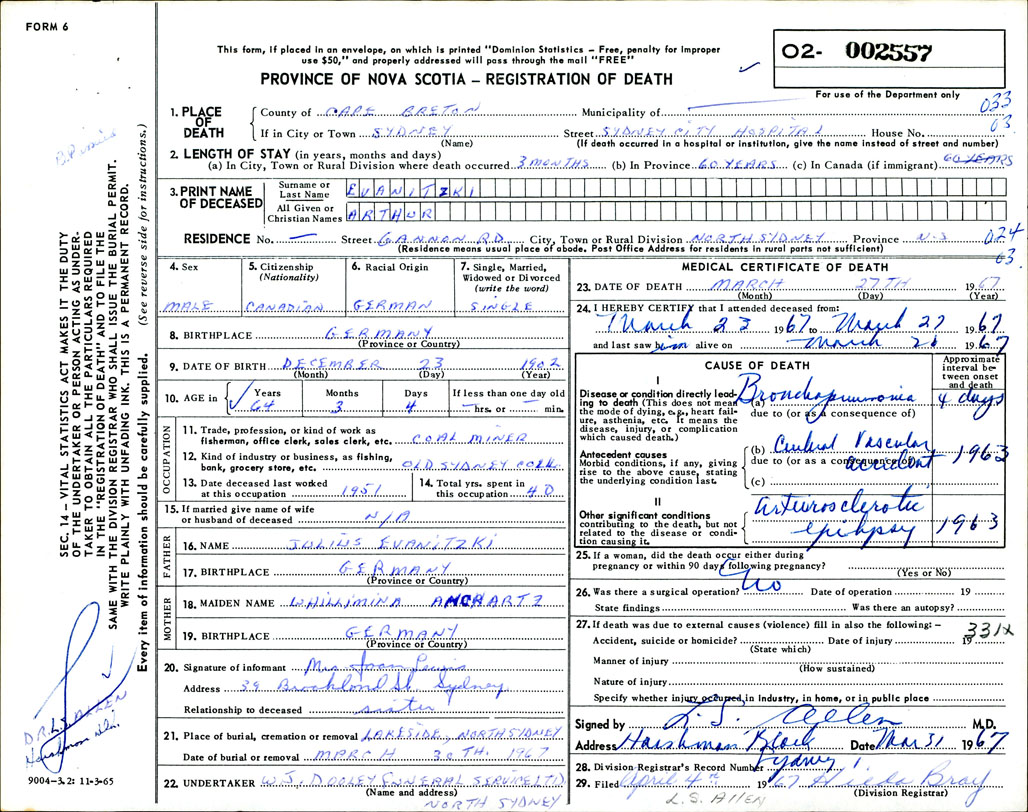 FORM 6
This form, if placed in an envelope, on which is printed "Dominion Statistics – Free, penalty for improper
use $50," and properly addressed will pass through the mail "FREE"
PROVINCE OF NOVA SCOTIA – REGISTRATION OF DEATH
02- 002557
For use of the Department only
033
03
1. PLACE OF DEATH
County of CAPE BRETON Municipality of
If in City or Town SYDNEY Street SYDNEY CITY HOSPITAL House No.
(Name) (If death occurred in a hospital or institution, give the name instead of street and number)
2. LENGTH OF STAY (in years, months and days)
(a) In City, Town or Rural Division where death occurred 3 MONTHS (b) In Province 60 YEARS (c) In Canada (if immigrant) 60 YEARS
3. PRINT NAME OF DECEASED
Surname or Last Name EVANITZKI
All Given or Christian Names ARTHUR
RESIDENCE No. — Street GANNAN RD City, Town or Rural Division NORTH SYDNEY Province N-S
(Residence means usual place of abode. Post Office Address for residents in rural parts not sufficient)
024
03
4. Sex MALE
5. Citizenship (Nationality) CANADIAN
6. Racial Origin GERMAN
7. Single, Married, Widowed or Divorced (write the word) SINGLE
8. BIRTHPLACE GERMANY
(Province or Country)
9. DATE OF BIRTH DECEMBER 23 1902
(Month) (Day) (Year)
10. AGE in Years 64 Months 3 Days 4 If less than one day old — hrs. or — min.
OCCUPATION
11. Trade, profession, or kind of work as fisherman, office clerk, sales clerk, etc. COAL MINER
12. Kind of industry or business, as fishing, bank, grocery store, etc. OLD SYDNEY COLL
13. Date deceased last worked at this occupation 1951
14. Total yrs. spent in this occupation 40
15. If married give name of wife or husband of deceased N/A
FATHER
16. NAME JULIUS EVANITZKI
17. BIRTHPLACE GERMANY
(Province or Country)
MOTHER
18. MAIDEN NAME WHILLIMINA
19. BIRTHPLACE GERMANY
(Province or Country)
20. Signature of informant Mrs Joan
Address 39 St Sydney
Relationship to deceased sister
21. Place of burial, cremation or removal LAKESIDE, NORTH SYDNEY
Date of burial or removal MARCH 30TH. 1967
22. UNDERTAKER W.J. DOOLEY FUNERAL SERVICE LTD
(Name and address)
NORTH SYDNEY
MEDICAL CERTIFICATE OF DEATH
23. DATE OF DEATH MARCH 27TH 1967
(Month) (Day) (Year)
24. I HEREBY CERTIFY that I attended deceased from:
March 23 1967 to March 27 1967
and last saw him alive on March 26 1967
CAUSE OF DEATH
Approximate interval between onset and death
I
Disease or condition directly leading to death (This does not mean the mode of dying, e.g., heart failure, asthenia, etc. It means the disease, injury, or complication which caused death.)
(a) Bronchopneumonia 4 days
due to (or as a consequence of)
Antecedent causes
Morbid conditions, if any, giving rise to the above cause, stating the underlying condition last.
(b) Cerebral Vascular accident 1963
due to (or as a consequence of)
(c)
II
Other significant conditions contributing to the death, but not related to the disease or condition causing it.
Arteriosclerotic
epilepsy 1963
25. If a woman, did the death occur either during
pregnancy or within 90 days following pregnancy?
(Yes or No)
26. Was there a surgical operation? No Date of operation 19
State findings Was there an autopsy?
27. If death was due to external causes (violence) fill in also the following: –
331X
Accident, suicide or homicide? Date of injury 19
(State which)
Manner of injury
(How sustained)
Nature of injury
Specify whether injury occurred in industry, in home, or in public place
Signed by L.S. Allen M.D.
Address Harshman Block Date Mar 31 1967
Sydney
28. Division Registrar's Record Number 1
29. Filed April 4th 1967 Hilda Bray
(Division Registrar)
L.S. ALLEN
SEC. 14 – VITAL STATISTICS ACT MAKES IT THE DUTY
OF THE UNDERTAKER OR PERSON ACTING AS UNDER-
TAKER TO OBTAIN ALL THE PARTICULARS REQUIRED
IN THE "REGISTRATION OF DEATH" AND TO FILE THE
SAME WITH THE DIVISION REGISTRAR WHO SHALL ISSUE THE BURIAL PERMIT.
WRITE PLAINLY WITH UNFADING INK. THIS IS A PERMANENT RECORD.
Every item of information should be carefully supplied. (See reverse side for instructions.)
DR. L.S. ALLEN
9004-3.2: 11-3-65